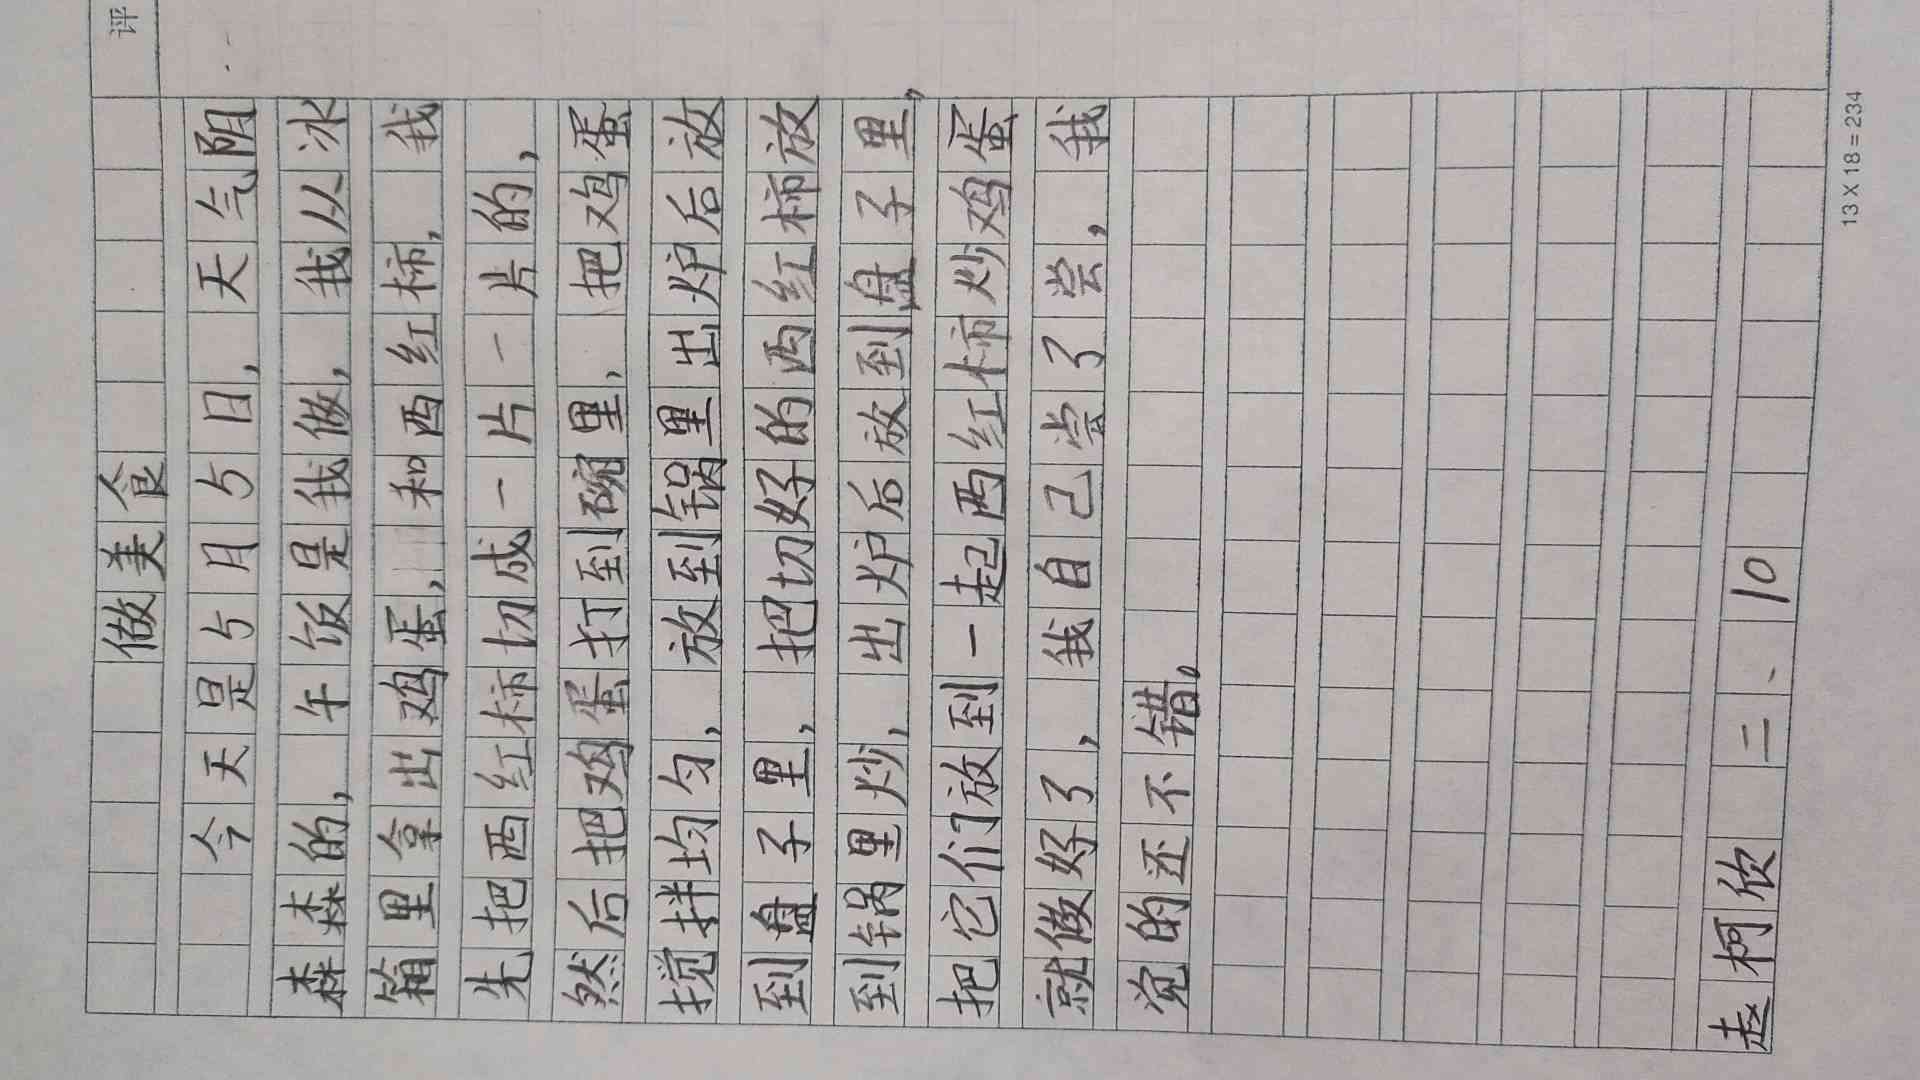 评
做美食
今天是5月5日，天气阴
森森的，午饭是我做，我从冰
箱里拿出鸡蛋，和西红柿，我
先把西红柿切成一片一片的，
然后把鸡蛋打到碗里，把鸡蛋
搅拌均匀，放到锅里出炉后放
到盘子里，把切好的西红柿放
到锅里炒，出炉后放到盘子里，
把它们放到一起西红柿炒鸡蛋
就做好了，我自己尝了尝，我
觉的还不错。
赵柯欣 二、10
13X18=234